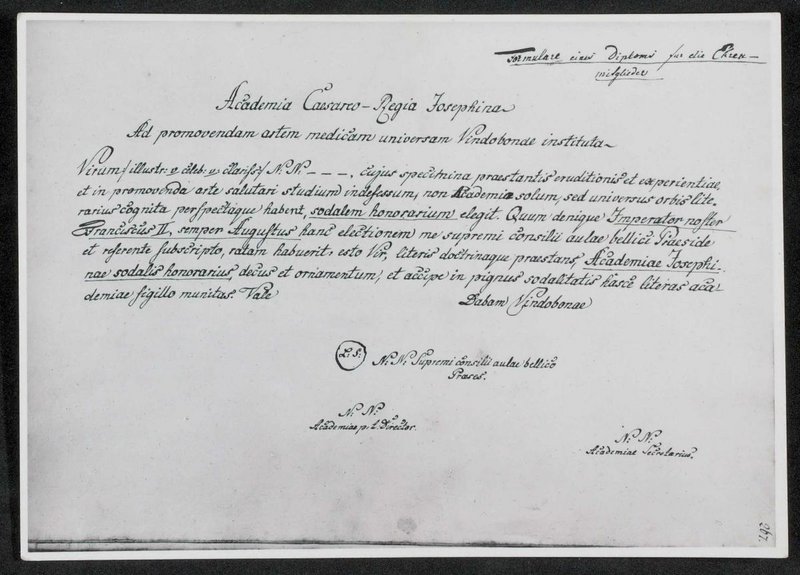 Formulare eines Diploms für die Ehren-
mitglieder
Academia Caesareo-Regia Josephina
Ad promovendam artem medicam universam Vindobonae instituta
Virum/illustr: v celeb: v clariss:/ N: N: – – –, cujus specimina praestantis eruditionis et experientiae,
et in promovenda arte salutari studium indefessum, non Academia solum, sed universus orbis lite-
rarius cognita perspectaque habent, sodalem honorarium elegit. Quum denique Imperator noster
Franciscus II, semper Augustus hanc electionem me supremi consilii aulae bellici Praeside
et referente subscripto, ratam habuerit, esto Vir, literis doctrinaque praestans, Academiae Josephi-
nae sodalis honorarius, decus et ornamentum, et accipe in pignus sodalitatis hasce literas aca-
demiae sigillo munitas. Vale
Dabam Vindobonae
L: S:
N: N: Supremi consilii aulae bellico
Praeses.
N: N:
Academiae p. t. Director.
N: N:
Academiae Secretarius.